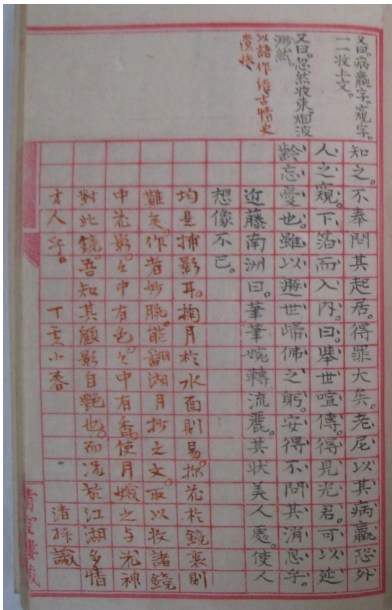 又曰。病羸字。窺字。
一一收上文。
又曰。忽然收束。烟波
渺然。
以語作結古情史
知之。不奉問其起居。得罪大矣。老尼以其病羸恐外
人之窺。下箔而入內。曰。舉世喧傳。得見光君。可以延
齡忘憂也。雖以遯世歸佛之躬。安得不問其消息乎。
近藤南洲曰。筆筆婉轉流麗。其狀美人處。使人
想像不已。
均是捕影耳。掬月於水面則易。探花於鏡裏則
難矣。作者妙腕。能翻湖月抄之文。取以收諸鏡
中花影。々中有色。々中有香。使月娥之与花神
對此鏡。吾知其顧影自艷也。而況於江湖多情
才人乎。
丁亥小春 渚孫識